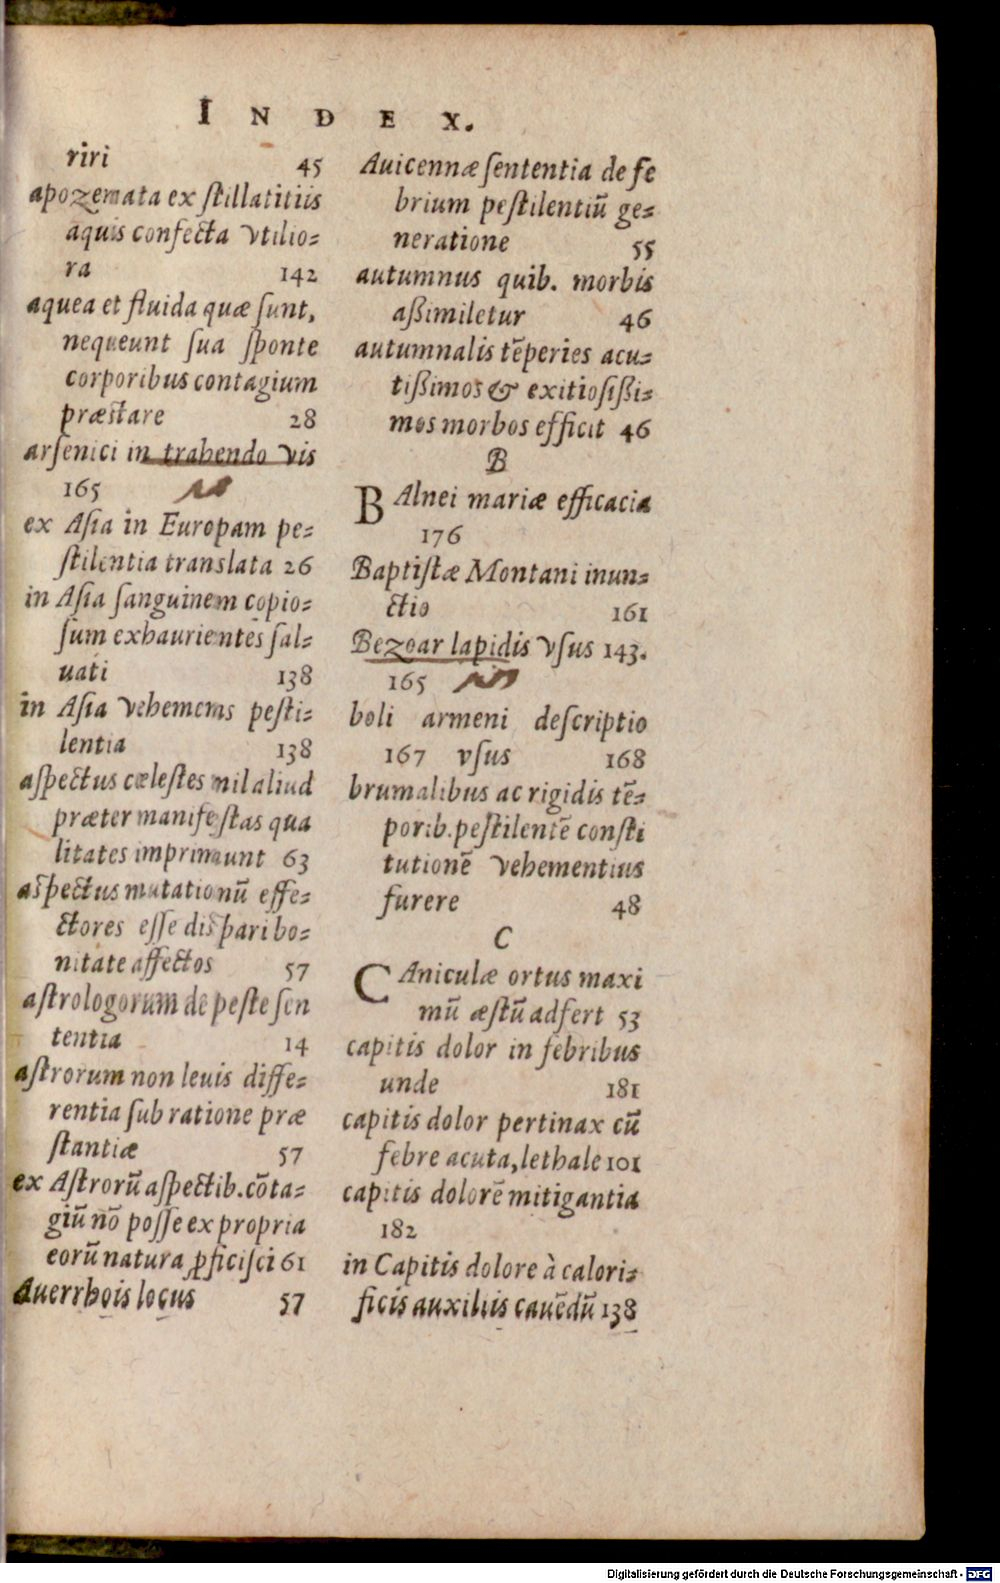 INDEX.
riri 45
apozemata ex stillatitiis
aquis confecta vtilio-
ra 142
aquea et fluida quæ sunt,
nequeunt sua sponte
corporibus contagium
præstare 28
arsenici in trahendo vis
165
ex Asia in Europam pe-
stilentia translata 26
in Asia sanguinem copio-
sum exhaurientes sal-
uati 138
in Asia vehemens pesti-
lentia 138
aspectus cælestes nil aliud
præter manifestas qua
litates imprimunt 63
aspectus mutationū effe-
ctores esse dispari bo-
nitate affectos 57
astrologorum de peste sen
tentia 14
astrorum non leuis diffe-
rentia sub ratione præ
stantiæ 57
ex Astrorū aspectib. cōta-
giū nō posse ex propria
eorū natura ꝓficisci 61
Auerrhois locus 57
Auicennæ sententia de fe
brium pestilentiū ge-
neratione 55
autumnus quib. morbis
aßimiletur 46
autumnalis tēperies acu-
tißimos & exitiosißi-
mos morbos efficit 46
B
BAlnei mariæ efficacia
176
Baptistæ Montani inun-
ctio 161
Bezoar lapidis vsus 143.
165
boli armeni descriptio
167 vsus 168
brumalibus ac rigidis tē-
porib. pestilentē consti
tutionē vehementius
furere 48
C
CAniculæ ortus maxi
mū æstū adfert 53
capitis dolor in febribus
unde 181
capitis dolor pertinax cū
febre acuta, lethale 101
capitis dolorē mitigantia
182
in Capitis dolore à calori-
ficis auxiliis cauēdū 138
Digitalisierung gefördert durch die Deutsche Forschungsgemeinschaft - DFG